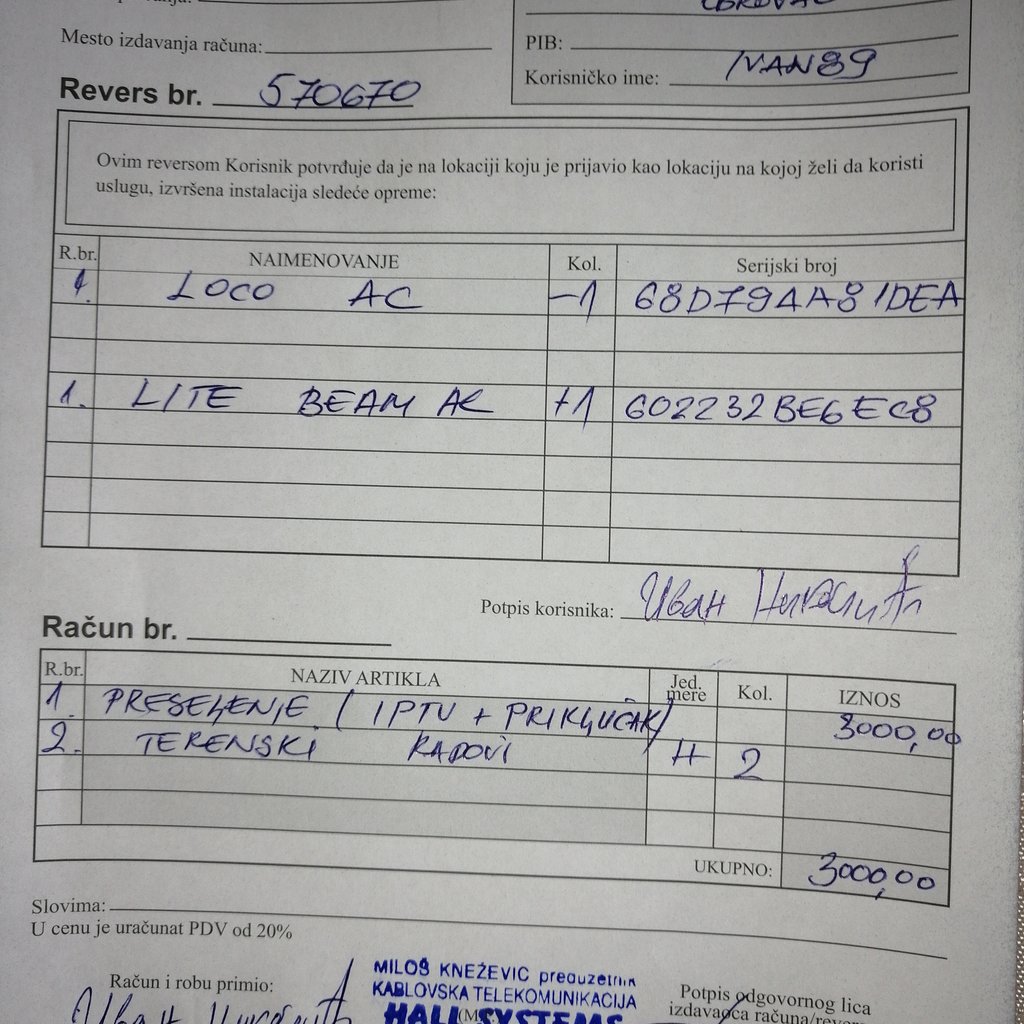 Mesto izdavanja računa:
PIB:
Korisničko ime: IVAN89
Revers br. 570670
Ovim reversom Korisnik potvrđuje da je na lokaciji koju je prijavio kao lokaciju na kojoj želi da koristi
uslugu, izvršena instalacija sledeće opreme:
R.br. NAIMENOVANJE Kol. Serijski broj
1. LOCO AC -1 68D79AA81DEA
1. LITE BEAM AC +1 602232BE6EC8
Potpis korisnika: Иван
Račun br.
R.br. NAZIV ARTIKLA Jed. mere Kol. IZNOS
1. PRESELJENJE (IPTV + PRIKLJUČAK) 3000,00
2. TERENSKI RADOVI H 2
UKUPNO: 3000,00
Slovima:
U cenu je uračunat PDV od 20%
Račun i robu primio:
Иван
MILOŠ KNEŽEVIC preduzetnik
KABLOVSKA TELEKOMUNIKACIJA
HALL SYSTEMS
(M.
Potpis odgovornog lica
izdavaoca računa/revers